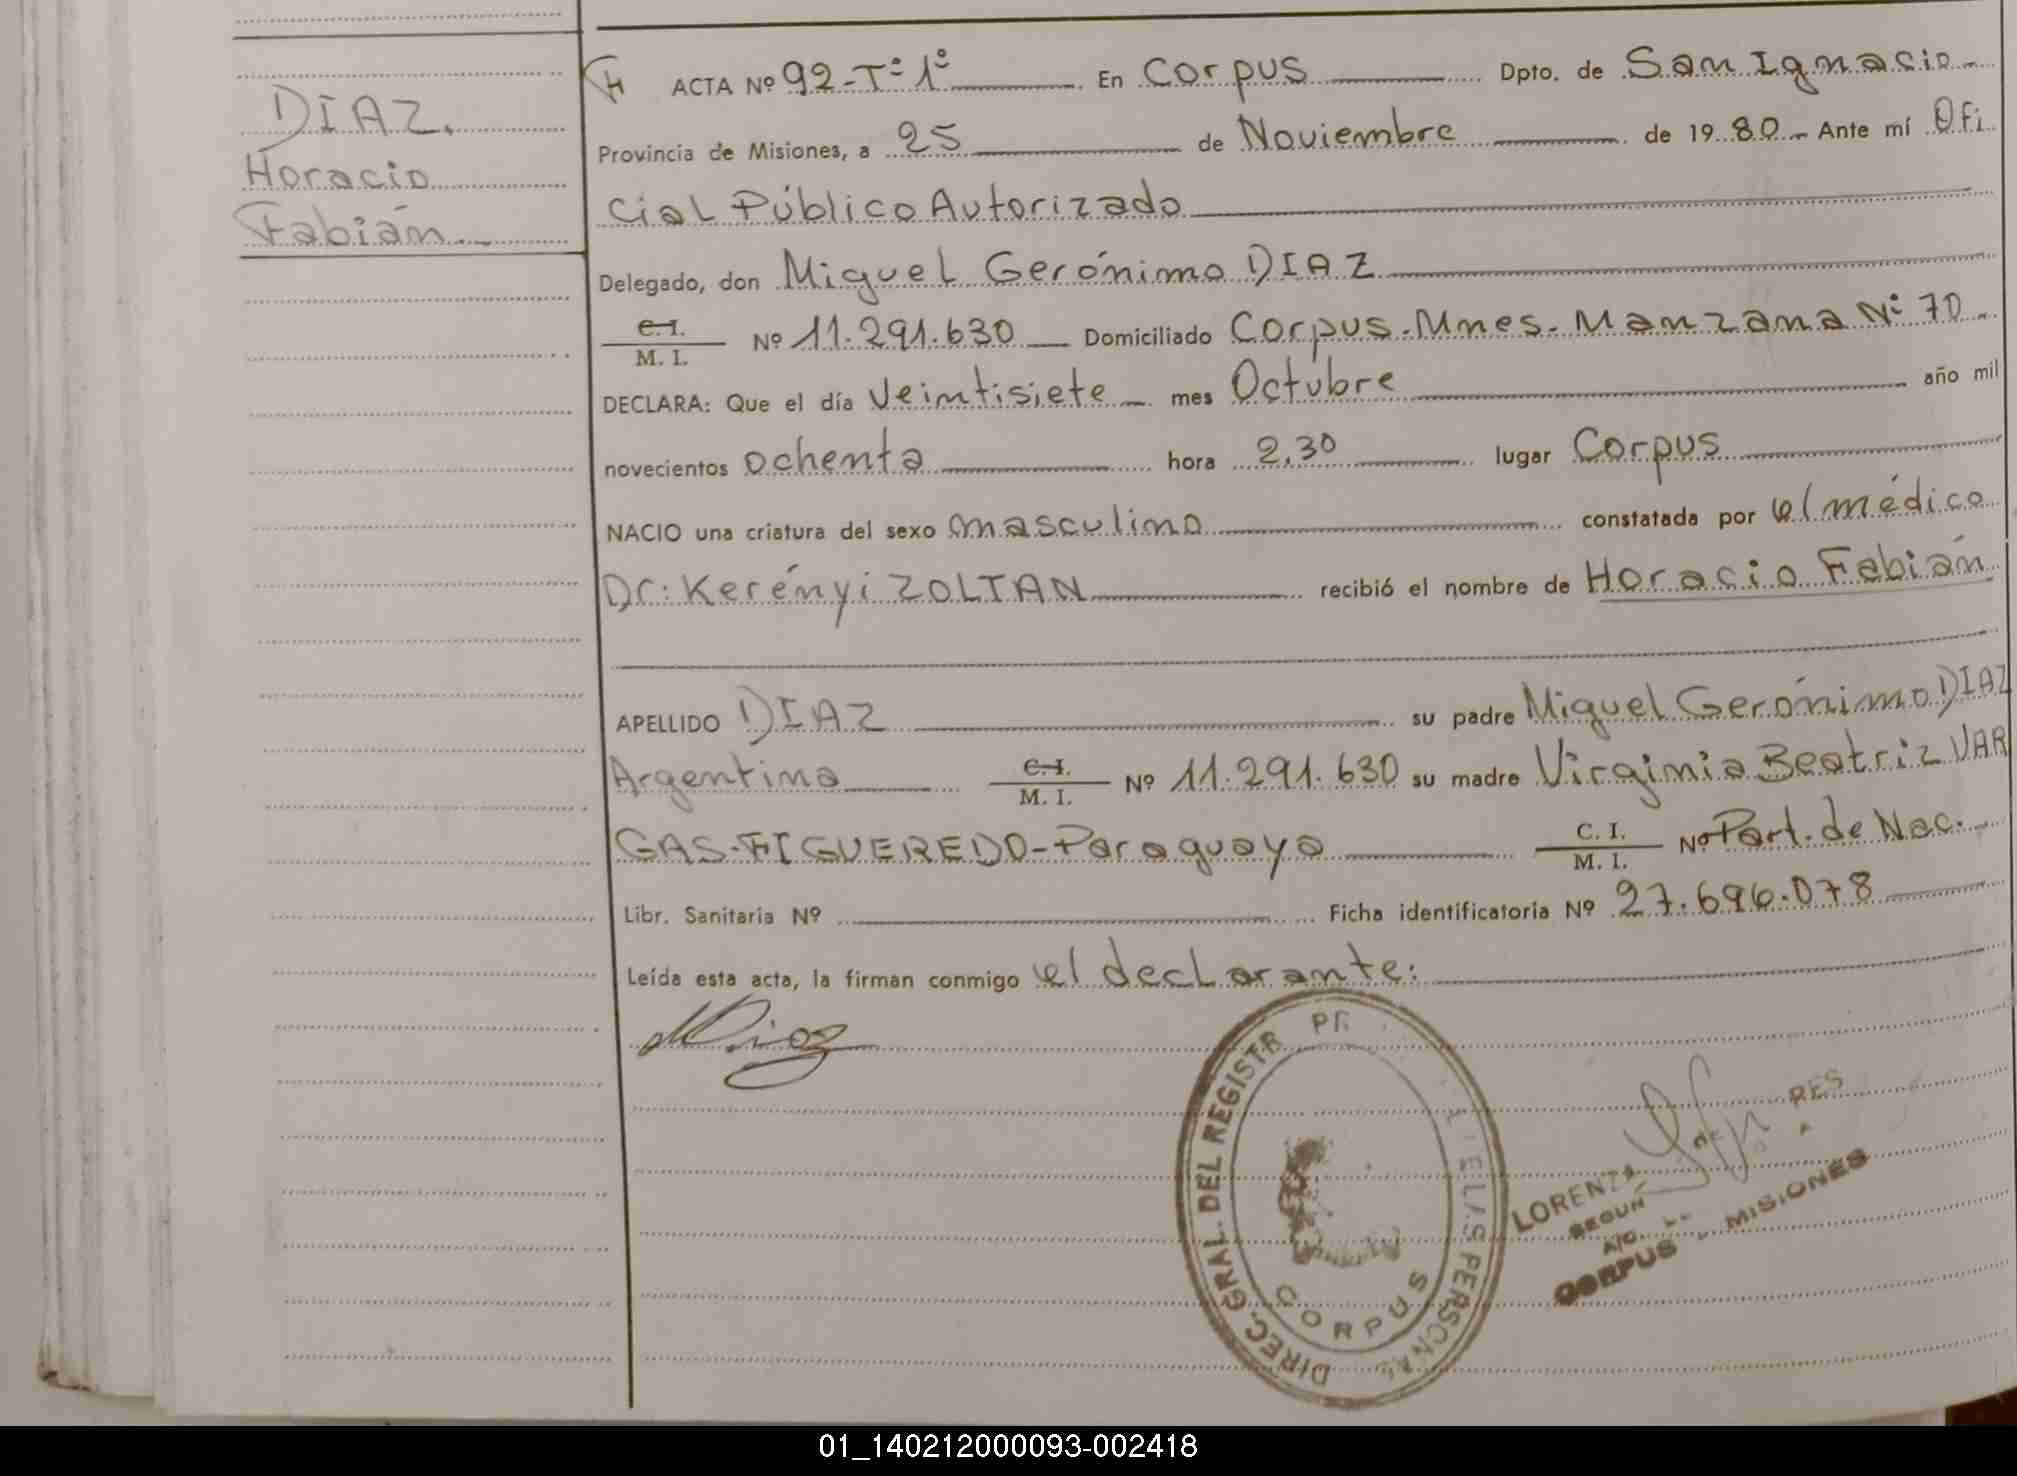 DIAZ.
Horacio
Fabián
ACTA Nº 92-Tº 1º En Corpus Dpto. de San Ignacio
Provincia de Misiones, a 25 de Noviembre de 1980 Ante mí Ofi
cial Público Autorizado
Delegado, don Miguel Gerónimo DIAZ
C.I. / M. I. Nº 11.291.630 Domiciliado Corpus.Mnes. Manzana Nº 70
DECLARA: Que el día veintisiete mes Octubre año mil
novecientos ochenta hora 2,30 lugar Corpus
NACIO una criatura del sexo masculino constatada por el médico
Dr: Kerényi ZOLTAN recibió el nombre de Horacio Fabián
APELLIDO DIAZ su padre Miguel Gerónimo DIAZ
Argentino C.I. / M. I. Nº 11.291.630 su madre Virginia Beatriz VAR
GAS-FIGUEREDO-Paraguaya C. I. / M. I. Nº Part. de Nac.
Libr. Sanitaria Nº Ficha identificatoria Nº 27.696.078
Leída esta acta, la firman conmigo el declarante:
MDiaz
DIREC. GRAL. DEL REGISTR PR
PERSONAS
CORPUS
LORENZA RES
SEGUN
A/C.
CORPUS - MISIONES
01_140212000093-002418